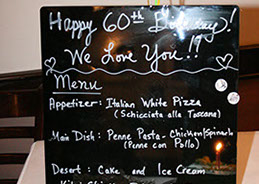 Happy 60th Birthday!
We Love You!!
Menu
Appetizer: Italian White Pizza
(Schicciata alla Toscana)
Main Dish: Penne Pasta - Chicken/Spinach
(Penne con Pollo)
Desert: Cake and Ice Cream